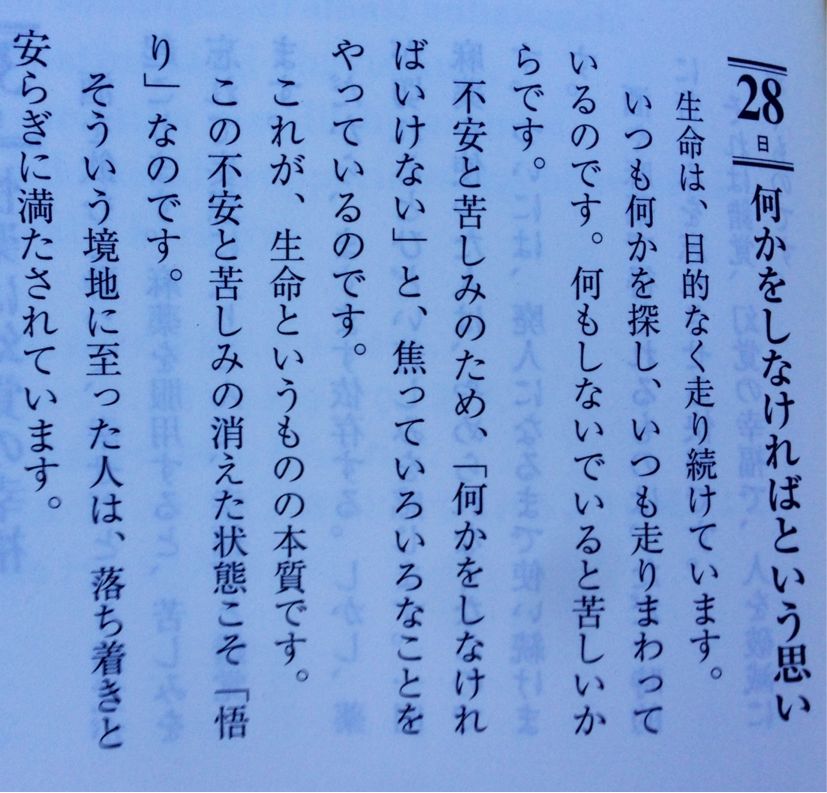 28日 何かをしなければという思い
生命は、目的なく走り続けています。
いつも何かを探し、いつも走りまわって
いるのです。何もしないでいると苦しいか
らです。
不安と苦しみのため、「何かをしなけれ
ばいけない」と、焦っていろいろなことを
やっているのです。
これが、生命というものの本質です。
この不安と苦しみの消えた状態こそ「悟
り」なのです。
そういう境地に至った人は、落ち着きと
安らぎに満たされています。